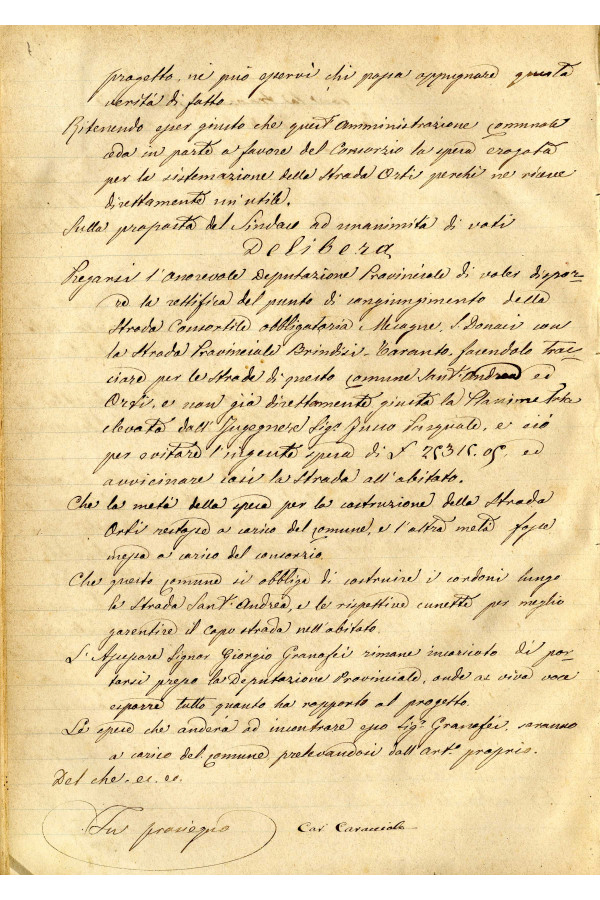 progetto, nè può esservi chi possa oppugnare questa
verità di fatto.
Ritenendo esser giusto che quest'Amministrazione comunale
ceda in parte a favore del Consorzio la spesa erogata
per la sistemazione della Strada Orti perchè ne riceve
direttamente un'utile.
Sulla proposta del Sindaco ad unanimità di voti
Delibera
Pregarsi l'Onorevole Deputazione Provinciale di voler dispor-
re la rettifica del punto di congiungimento della
Strada Consortile obbligatoria Mesagne, S. Donaci con
la Strada Provinciale Brindisi-Taranto, facendolo trac-
ciare per le Strade di questo comune Sant'Andrea ed
Orti, e non già direttamente giusta la Planimetria
elevata dall'Ingegnere Sigr. Pasquale, e ciò
per evitare l'ingente spesa di £ ed
avvicinare così la Strada all'abitato.
Che la metà della spesa per la costruzione della Strada
Orti restasse a carico del comune, e l'altra metà fosse
messa a carico del consorzio.
Che questo comune si obbliga di costruire i cordoni lungo
la Strada Sant'Andrea, e le rispettive cunette per meglio
garentire il capo strada nell'abitato.
L'Assessore Signor Giorgio Granafei rimane incaricato di por-
tarsi presso la Deputazione Provinciale, onde a viva voce
esporre tutto quanto ha rapporto al progetto.
Le spese che anderà ad incontrare esso Sigr. Granafei, saranno
a carico del comune prelevandosi dall'Arto. proprio.
Del che. ec. ec.
In prosieguo Cav. Caracciolo